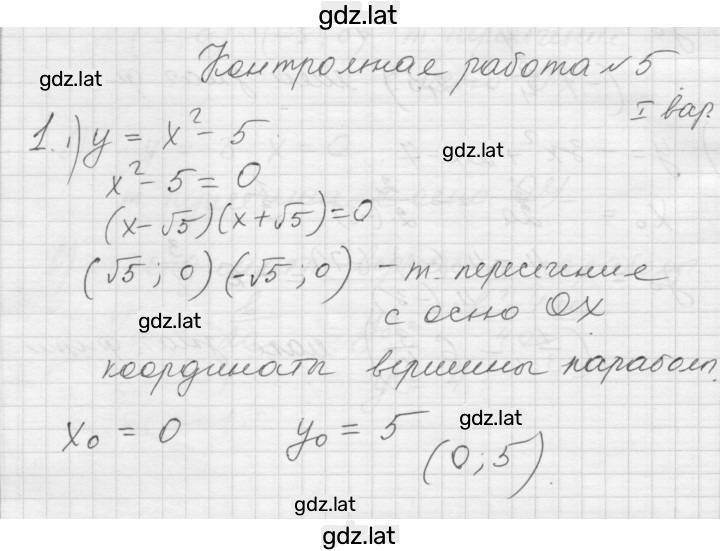 gdz.lat
Контрольная работа №5
gdz.lat
I вар.
1. 1) y = x² - 5
gdz.lat
x² - 5 = 0
(x - √5)(x + √5) = 0
(√5; 0) (-√5; 0) - т. пересечение
gdz.lat
с осью OX
координаты вершины парабол.
x₀ = 0 y₀ = 5
gdz.lat
(0; 5)
gdz.lat
gdz.lat